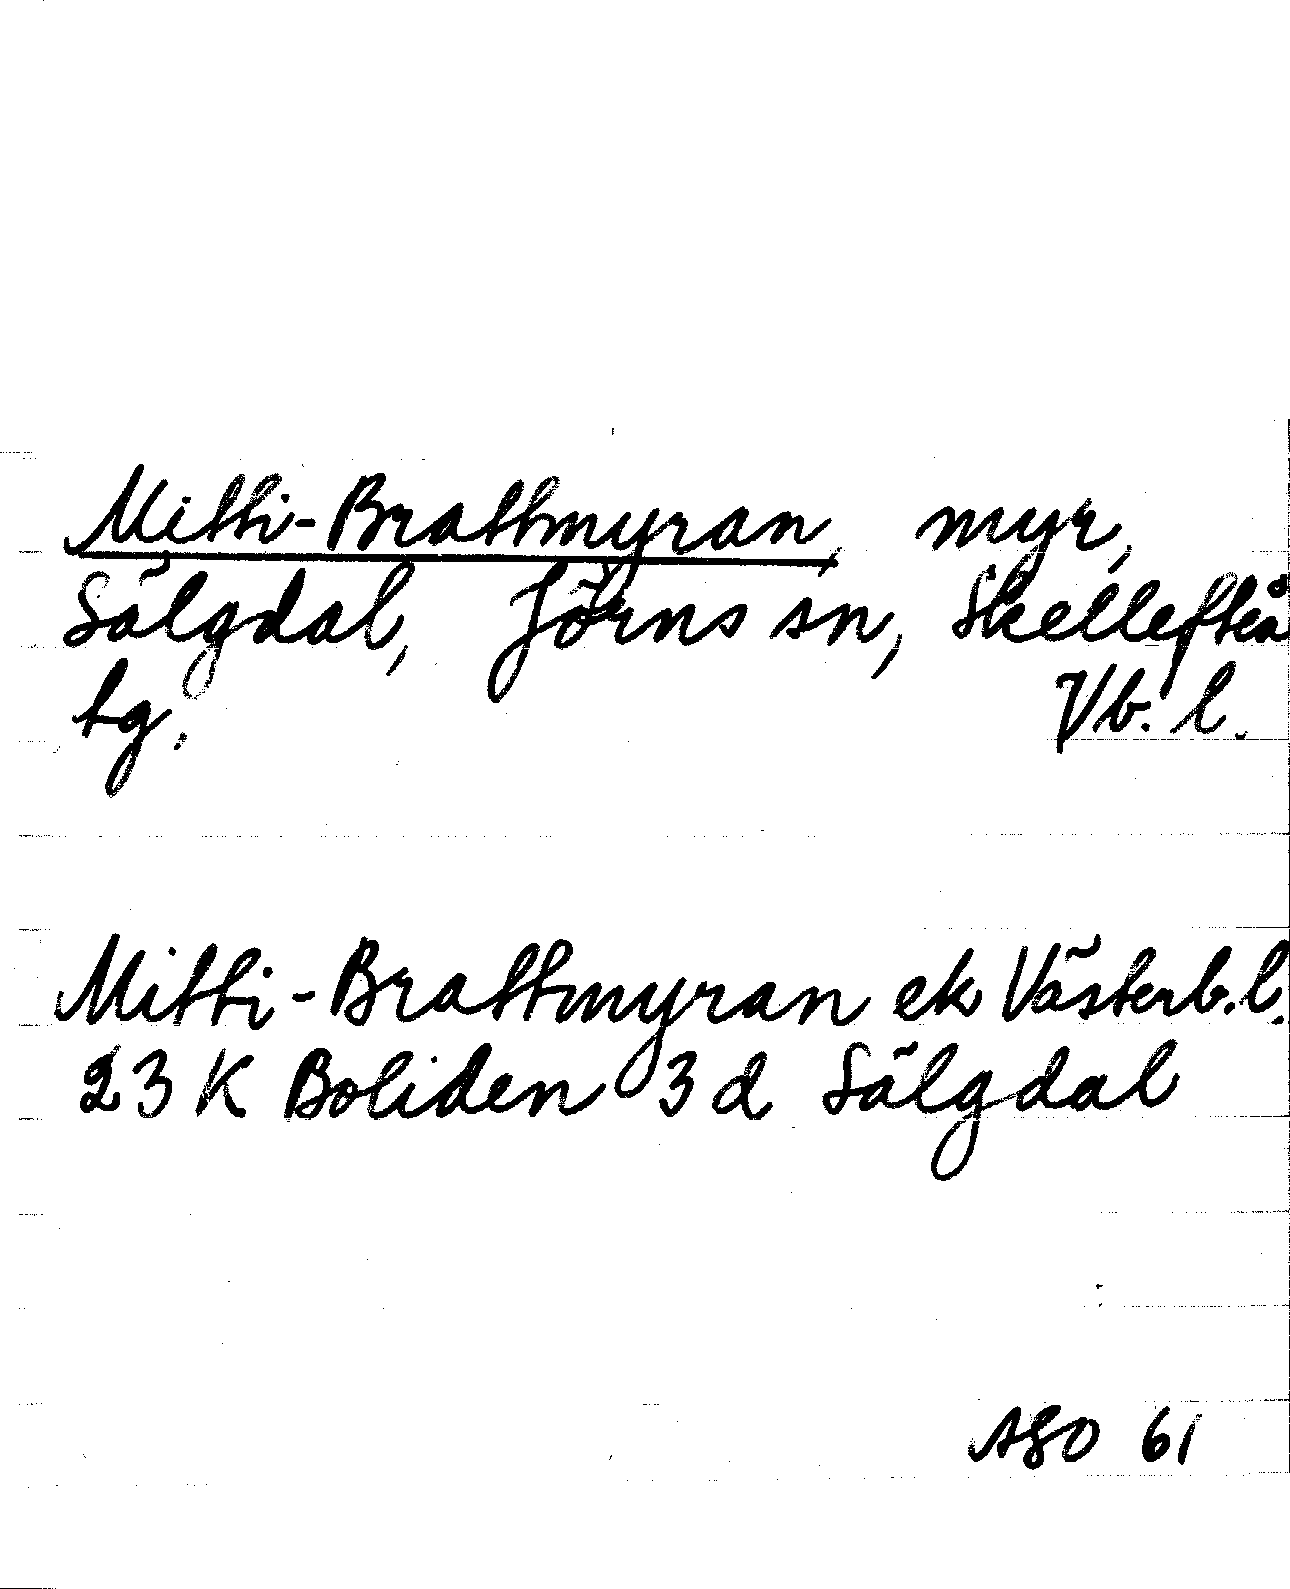 Mitti-Brattmyran, myr,
Sälgdal, Jörns sn, Skellefteå
tg. Vb. l.
Mitti-Brattmyran ek Västerb. l.
23 K Boliden 3 d Sälgdal
61